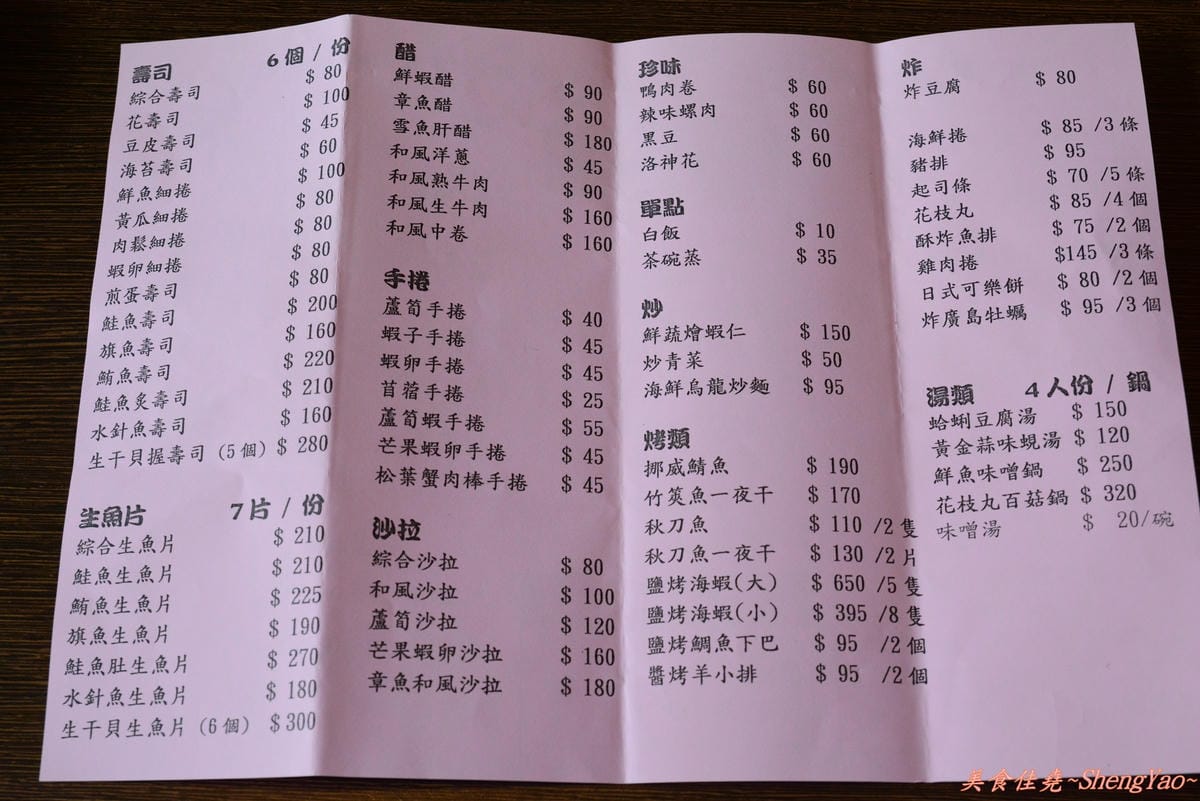 壽司 6個 / 份
綜合壽司 $ 80
花壽司 $ 100
豆皮壽司 $ 45
海苔壽司 $ 60
鮮魚細捲 $ 100
黃瓜細捲 $ 80
肉鬆細捲 $ 80
蝦卵細捲 $ 80
煎蛋壽司 $ 80
鮭魚壽司 $ 200
旗魚壽司 $ 160
鮪魚壽司 $ 220
鮭魚炙壽司 $ 210
水針魚壽司 $ 160
生干貝握壽司 (5個) $ 280
生魚片 7片 / 份
綜合生魚片 $ 210
鮭魚生魚片 $ 210
鮪魚生魚片 $ 225
旗魚生魚片 $ 190
鮭魚肚生魚片 $ 270
水針魚生魚片 $ 180
生干貝生魚片 (6個) $300
醋
鮮蝦醋 $ 90
章魚醋 $ 90
雪魚肝醋 $ 180
和風洋蔥 $ 45
和風熟牛肉 $ 90
和風生牛肉 $ 160
和風中卷 $ 160
手捲
蘆筍手捲 $ 40
蝦子手捲 $ 45
蝦卵手捲 $ 45
苜蓿手捲 $ 25
蘆筍蝦手捲 $ 55
芒果蝦卵手捲 $ 45
松葉蟹肉棒手捲 $ 45
沙拉
綜合沙拉 $ 80
和風沙拉 $ 100
蘆筍沙拉 $ 120
芒果蝦卵沙拉 $ 160
章魚和風沙拉 $ 180
珍味
鴨肉卷 $ 60
辣味螺肉 $ 60
黑豆 $ 60
洛神花 $ 60
單點
白飯 $ 10
茶碗蒸 $ 35
炒
鮮蔬燴蝦仁 $ 150
炒青菜 $ 50
海鮮烏龍炒麵 $ 95
烤類
挪威鯖魚 $ 190
竹筴魚一夜干 $ 170
秋刀魚 $ 110 /2 隻
秋刀魚一夜干 $ 130 /2 片
鹽烤海蝦(大) $ 650 /5 隻
鹽烤海蝦(小) $ 395 /8 隻
鹽烤鯛魚下巴 $ 95 /2 個
醬烤羊小排 $ 95 /2 個
炸
炸豆腐 $ 80
海鮮捲 $ 85 /3 條
豬排 $ 95
起司條 $ 70 /5 條
花枝丸 $ 85 /4 個
酥炸魚排 $ 75 /2 個
雞肉捲 $145 /3 條
日式可樂餅 $ 80 /2 個
炸廣島牡蠣 $ 95 /3 個
湯類 4 人份 / 鍋
蛤蜊豆腐湯 $ 150
黃金蒜味蜆湯 $ 120
鮮魚味噌鍋 $ 250
花枝丸百菇鍋 $ 320
味噌湯 $ 20/碗
美食佳堯~ShengYao~